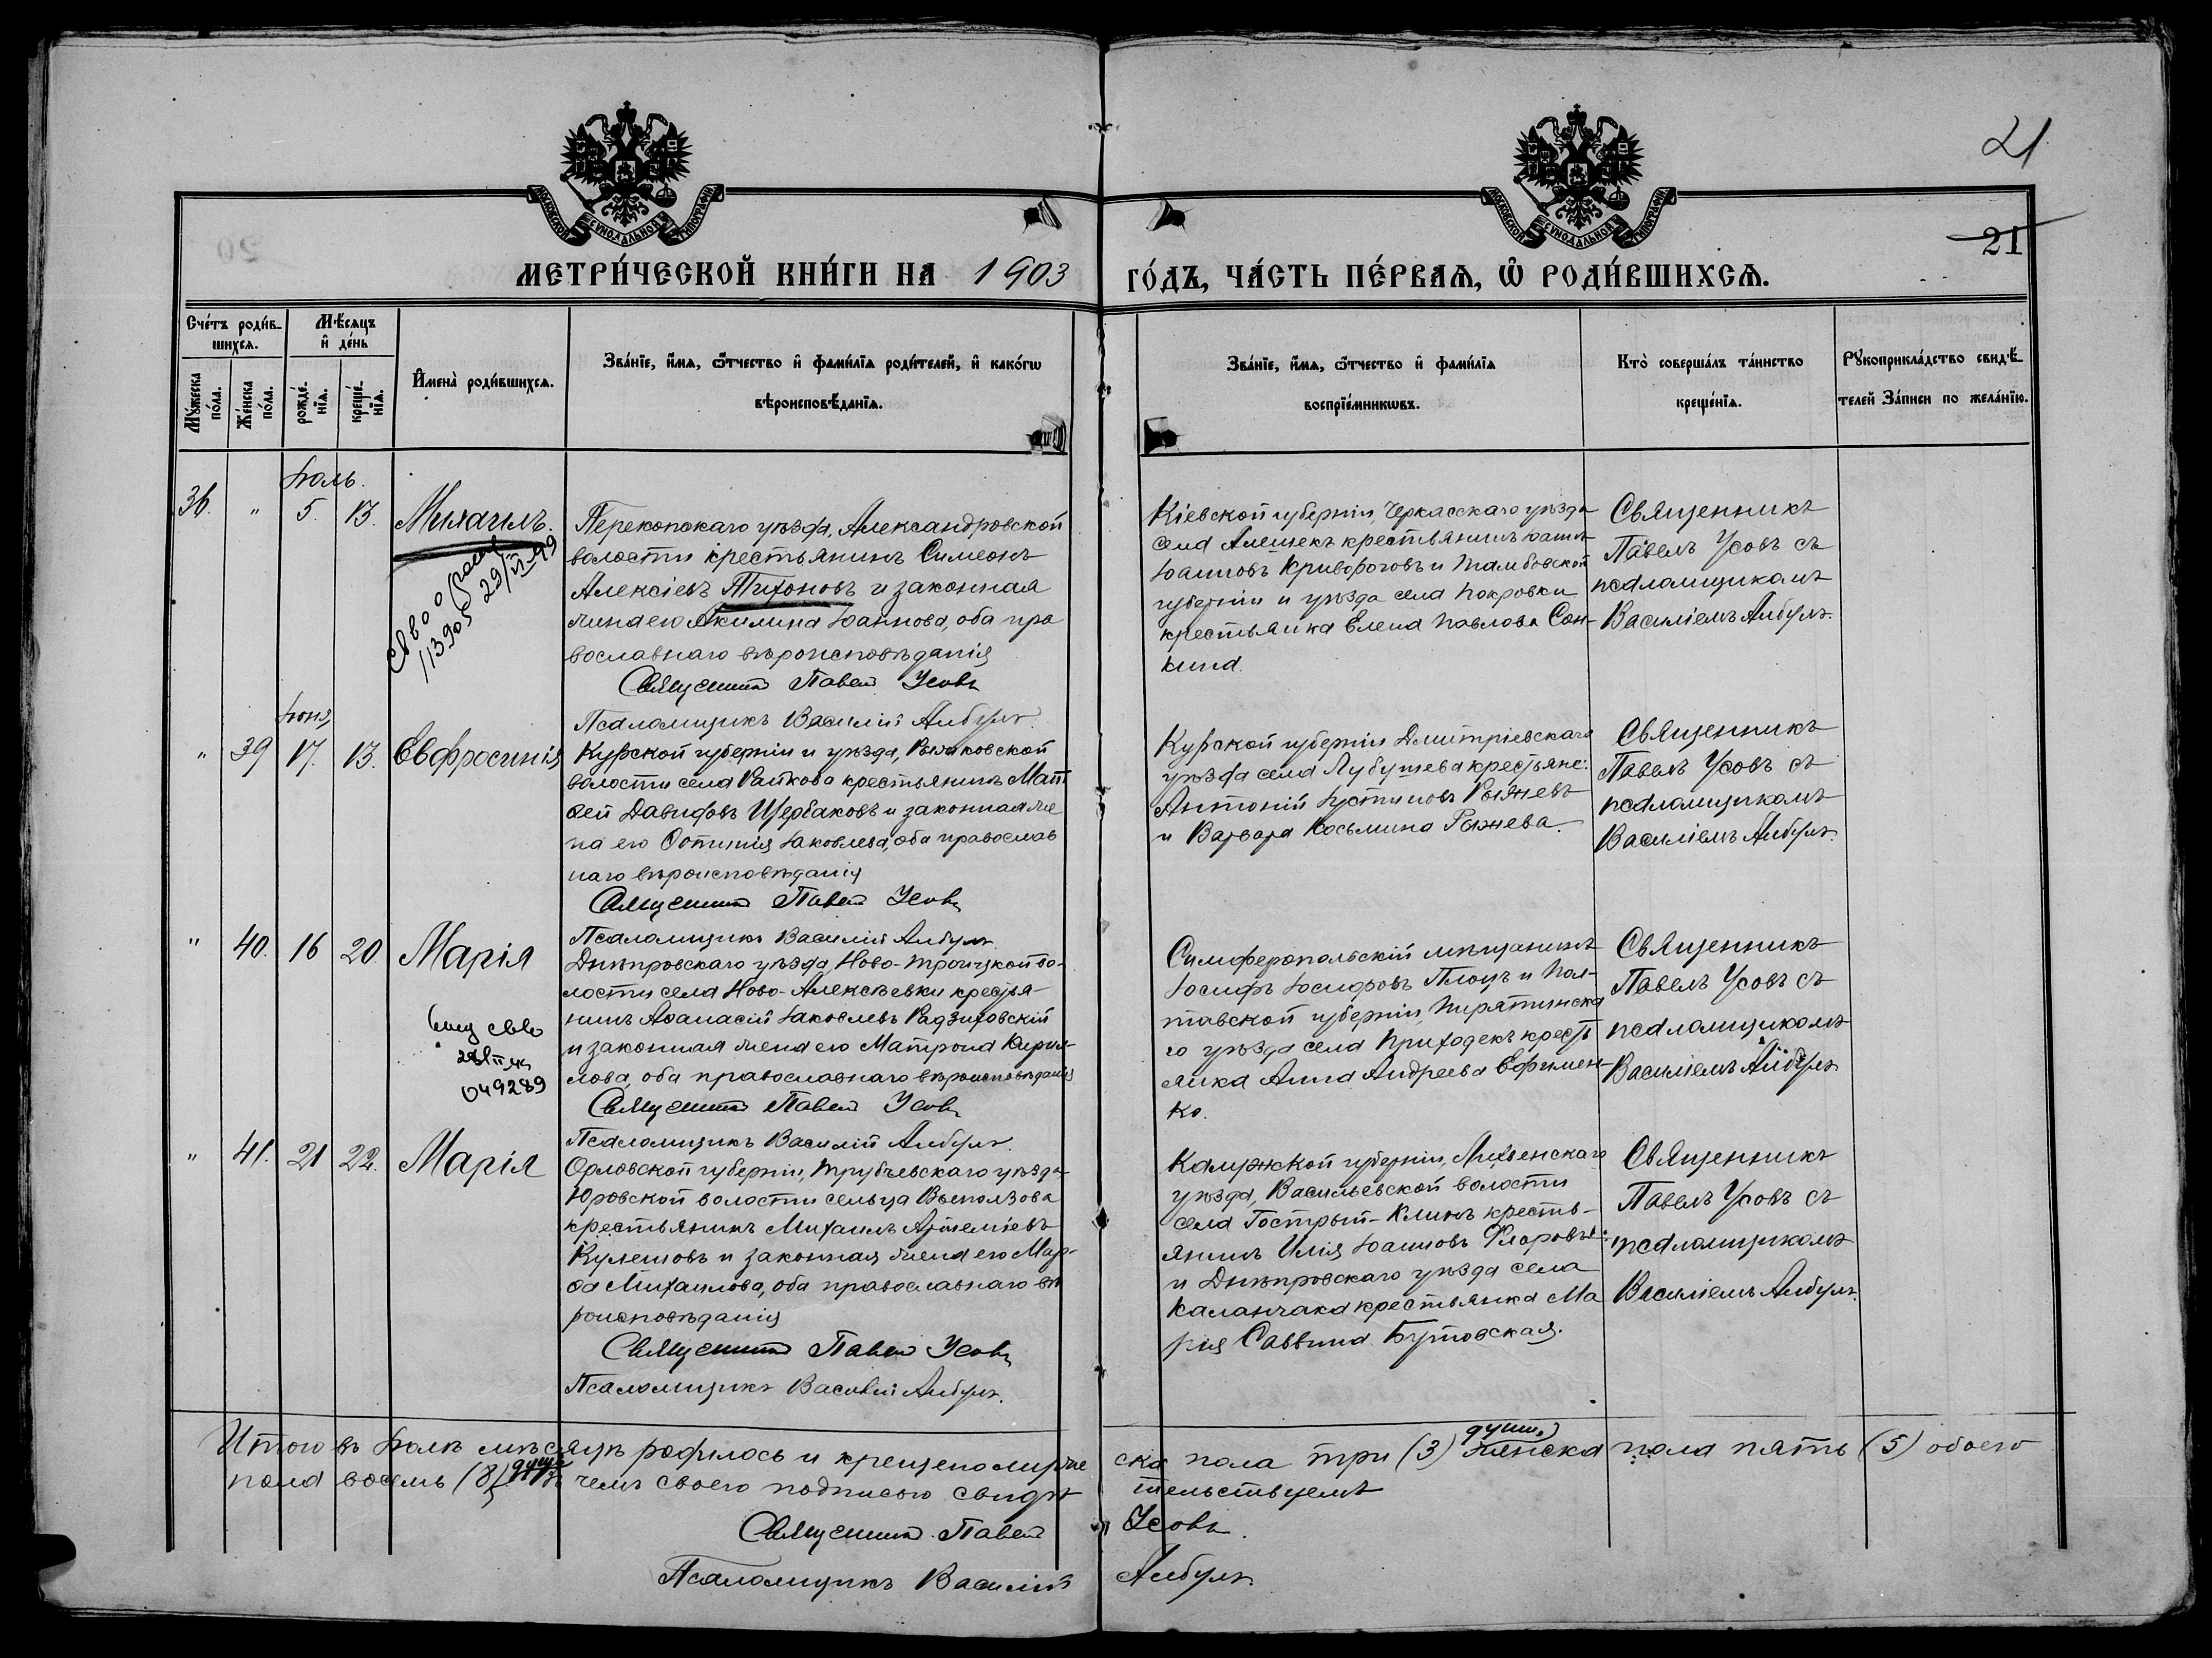 21
МОСКОВСКОЙ СУНОДАЛЬНОЙ ТИПОГРАФІИ
МОСКОВСКОЙ СУНОДАЛЬНОЙ ТИПОГРАФІИ
21
МЕТРИ́ЧЕСКОЙ КНИ́ГИ НА 1903 ГО́ДЪ, ЧА́СТЬ ПЕ́РВАѦ, Ѡ҆ РОДИ́ВШИХСѦ.
Сче́тъ роди́в-
шихсѧ.
Мꙋ́жеска
по́ла.
Же́нска
по́ла.
Мѣ́сѧцъ
и҆ де́нь
рожде́-
нїѧ.
креще́-
нїѧ.
И҆мена̀ роди́вшихсѧ.
Зва́нїе, и҆́мѧ, ѻ҆́тчество и҆ фами́лїѧ роди́телей, и҆ како́гѡ
вѣроисповѣ́данїѧ.
Зва́нїе, и҆́мѧ, ѻ҆́тчество и҆ фами́лїѧ
воспрїе́мникѡвъ.
Кто̀ соверша́лъ та́инство
креще́нїѧ.
Рꙋкоприкла́дство свидѣ́-
телей За́писи по жела́нїю.
Іюль.
36. " 5. 13. Михаилъ.
113905 29/VI-49
Перекопскаго уѣзда, Александровской
волости крестьянинъ Симеонъ
Алексіевъ Тихоновъ и законная
жена его Акилина Іоаннова, оба пра
вославнаго вѣроисповѣданія
Священникъ Павелъ Усовъ
Псаломщикъ Василій Анбулъ
Кіевской губерніи, Черкасскаго уѣзда
села крестьянинъ
Іоанновъ Криворотовъ и Тамбовской
губерніи и уѣзда села Покровки
крестьянка Елена Павлова Сон-
кина.
Священникъ
Павелъ Усовъ съ
псаломщикомъ
Василіемъ Анбулъ.
Іюня
" 39 17. 13. Евфросинія
Курской губерніи и уѣзда, Рышковской
волости села Райкова крестьянинъ Мат
ѳей Давидовъ Щербаковъ и законная же
на его Ѳотинія Іаковлева, оба православ
наго вѣроисповѣданія
Священникъ Павелъ Усовъ
Псаломщикъ Василій Анбулъ
Курской губерніи Дмитріевскаго
уѣзда села Лубушева крестьяне:
Антоній Іустиновъ Рыжевъ
и Варвара Косьмина Рыжева.
Священникъ
Павелъ Усовъ съ
псаломщикомъ
Василіемъ Анбулъ.
" 40. 16 20. Марія
049289
Днѣпровскаго уѣзда Ново-Троицкой во-
лости села Ново-Алексѣевки крестья-
нинъ Аѳанасій Іаковлевъ Радзиховскій
и законная жена его Матрона Кирил-
лова, оба православнаго вѣроисповѣданія
Священникъ Павелъ Усовъ
Псаломщикъ Василій Анбулъ.
Симферопольскій мѣщанинъ
Іосифъ Іосифовъ Плоцъ и Пол-
тавской губерніи, Пирятинска
го уѣзда села Приходекъ кресть
янка Анна Андреева Ефимен-
ко.
Священникъ
Павелъ Усовъ съ
псаломщикомъ
Василіемъ Анбулъ
" 41. 21 22. Марія
Орловской губерніи, Трубчевскаго уѣзда
Юровской волости сельца Выползова
крестьянинъ Михаилъ Артеміевъ
Кулешовъ и законная жена его Мар-
ѳа Михаилова, оба православнаго вѣ
роисповѣданія
Священникъ Павелъ Усовъ
Псаломщикъ Василій Анбулъ.
Калужской губерніи, Лихвенскаго
уѣзда, Васильевской волости
села Гострый-Клинъ кресть-
янинъ Илія Іоанновъ Флоровъ
и Днѣпровскаго уѣзда села
Каланчака крестьянка Ма
рія Саввина Бутовская.
Священникъ
Павелъ Усовъ съ
псаломщикомъ
Василіемъ Анбулъ.
Итого въ Іюлѣ мѣсяцѣ родилось и крещено мужескa пола три (3) души, женска пола пять (5) обоего
пола восемь (8) душъ въ чемъ своею подписью свидѣтельствуемъ
Священникъ Павелъ Усовъ.
Псаломщикъ Василій Анбулъ